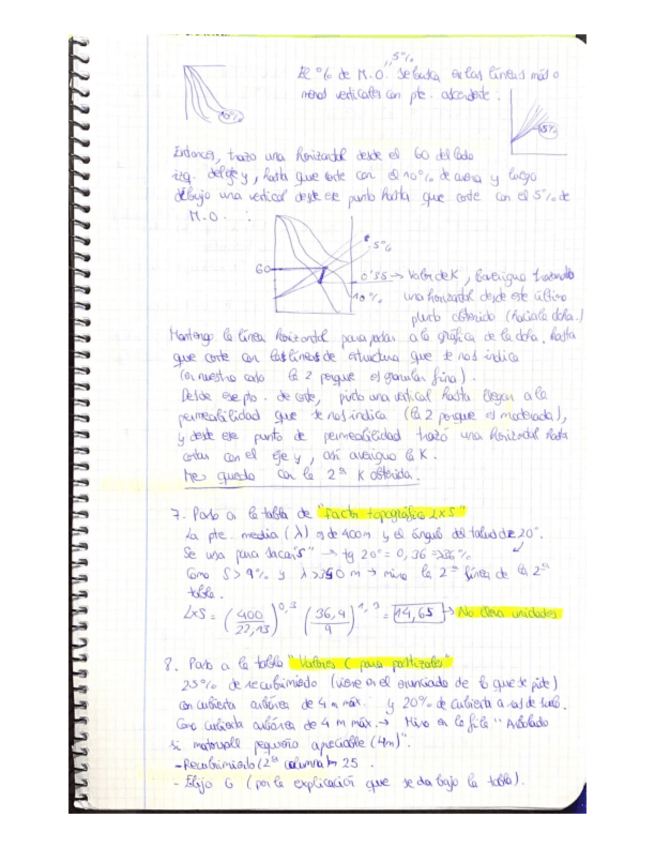 5%
El % de M.O. se busca en las líneas más o
menos verticales con pte. ascendente.
10%
5%
Entonces, trazo una horizontal desde el 60 del lado
izq. del eje y, hasta que corte con el 10% de arena y luego
dibujo una vertical desde ese punto hasta que corte con el 5% de
M.O. :
5%
60
0'35 → Valor de K, lo averiguo trazando
10%
una horizontal desde este último
punto obtenido (hacia la dcha.)
Mantengo la línea horizontal para pasar a la gráfica de la dcha. hasta
que corte con las líneas de estructura que se nos indica
(en nuestro caso la 2 porque es granular fina).
Desde ese pto. de corte, pinto una vertical hasta llegar a la
permeabilidad que se nos indica (la 2 porque es moderada),
y desde ese punto de permeabilidad trazó una horizontal hasta
cortar con el eje y, así averiguo la K.
Me quedo con la 2ª K obtenida.
7. Paso a la tabla de "factor topográfico LxS"
La pte. media (λ) es de 400m y el ángulo del talud de 20°.
Se usa para sacar "S" → tg 20° = 0,36 ⇒ 36%
Como S > 9% y λ > 350 m → miro la 2ª línea de la 2ª
tabla.
LxS = (400/22,13)^0,3 (36,4/9)^1,3 = 14,65 → No lleva unidades
8. Paso a la tabla "Valores C para pastizales"
25% de recubrimiento (viene en el enunciado de lo que se pide)
con cubierta arbórea de 4 m máx. y 20% de cubierta a ras de suelo.
Como cubierta arbórea de 4 m máx. → Miro en la fila "Arbolado
si matorral pequeño apreciable (4m)".
- Recubrimiento (2ª columna) → 25.
- Elijo G (por la explicación que se da bajo la tabla).